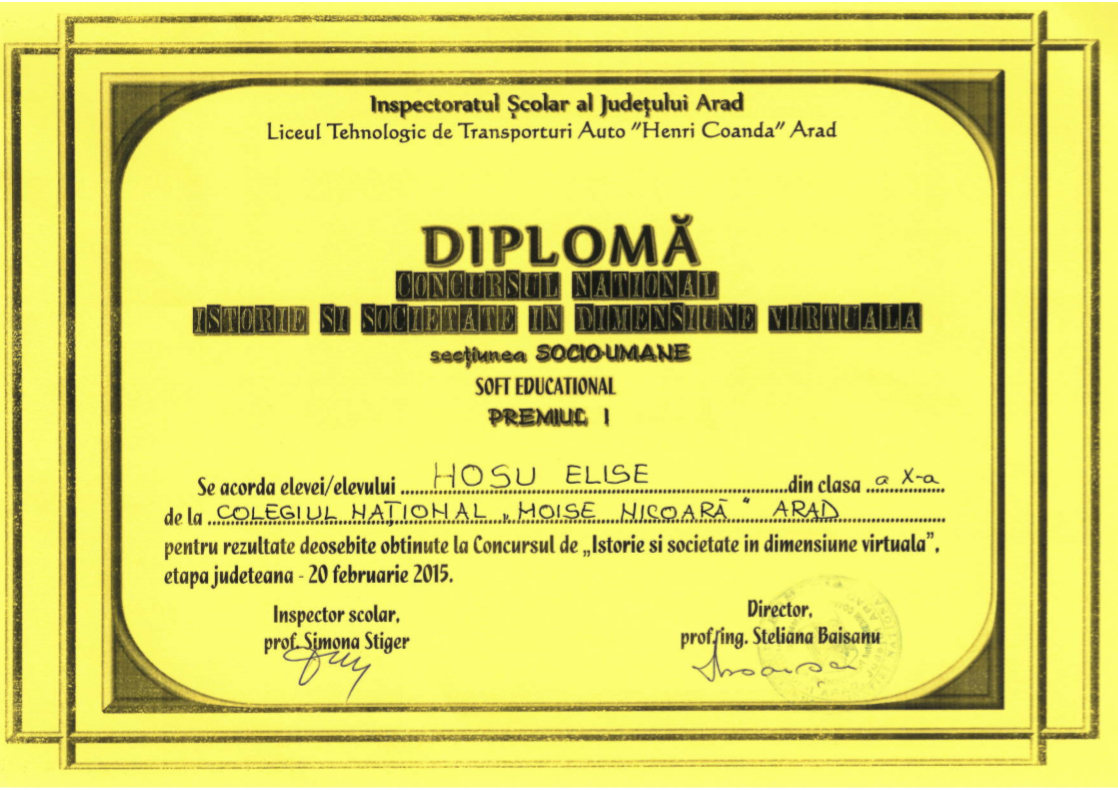 Inspectoratul Școlar al Județului Arad
Liceul Tehnologic de Transporturi Auto "Henri Coanda" Arad
DIPLOMĂ
CONCURSUL NATIONAL
ISTORIE SI SOCIETATE IN DIMENSIUNE VIRTUALA
secțiunea SOCIO-UMANE
SOFT EDUCATIONAL
PREMIUL I
Se acorda elevei/elevului HOSU ELISE din clasa a X-a
de la COLEGIUL NAȚIONAL „MOISE NICOARĂ" ARAD
pentru rezultate deosebite obtinute la Concursul de „Istorie si societate in dimensiune virtuala”,
etapa judeteana - 20 februarie 2015.
Inspector scolar, Director,
prof. Simona Stiger prof.ing. Steliana Baisanu